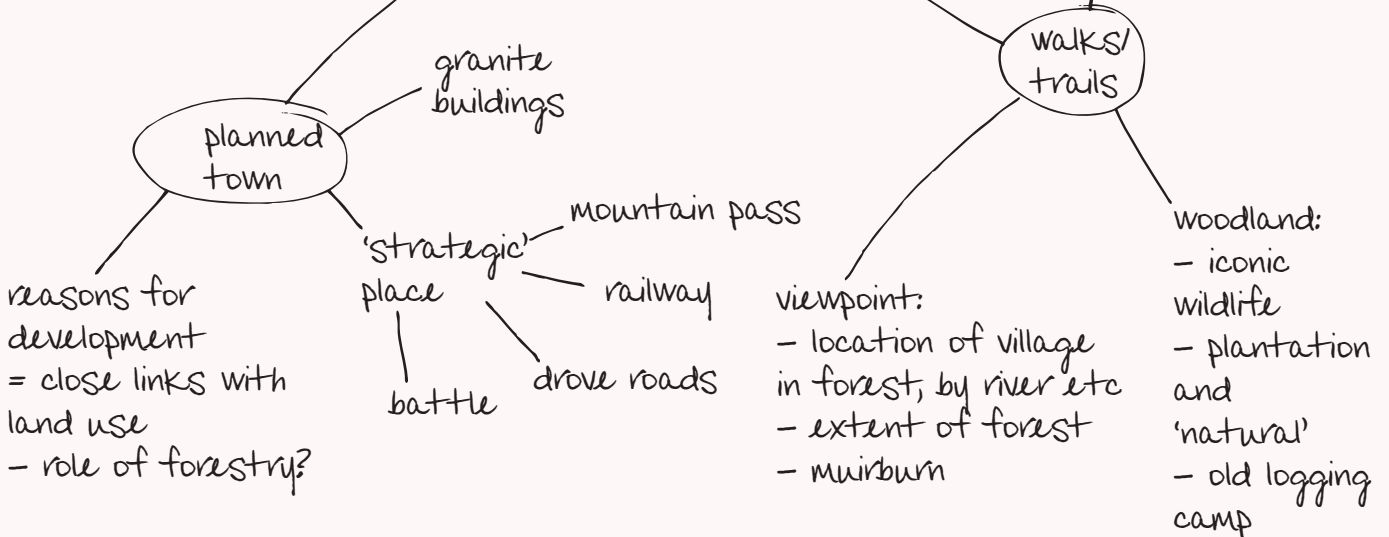 granite
buildings
planned
town
'strategic'
place
mountain pass
railway
drove roads
battle
reasons for
development
= close links with
land use
– role of forestry?
walks/
trails
viewpoint:
– location of village
in forest, by river etc
– extent of forest
– muirburn
woodland:
– iconic
wildlife
– plantation
and
'natural'
– old logging
camp